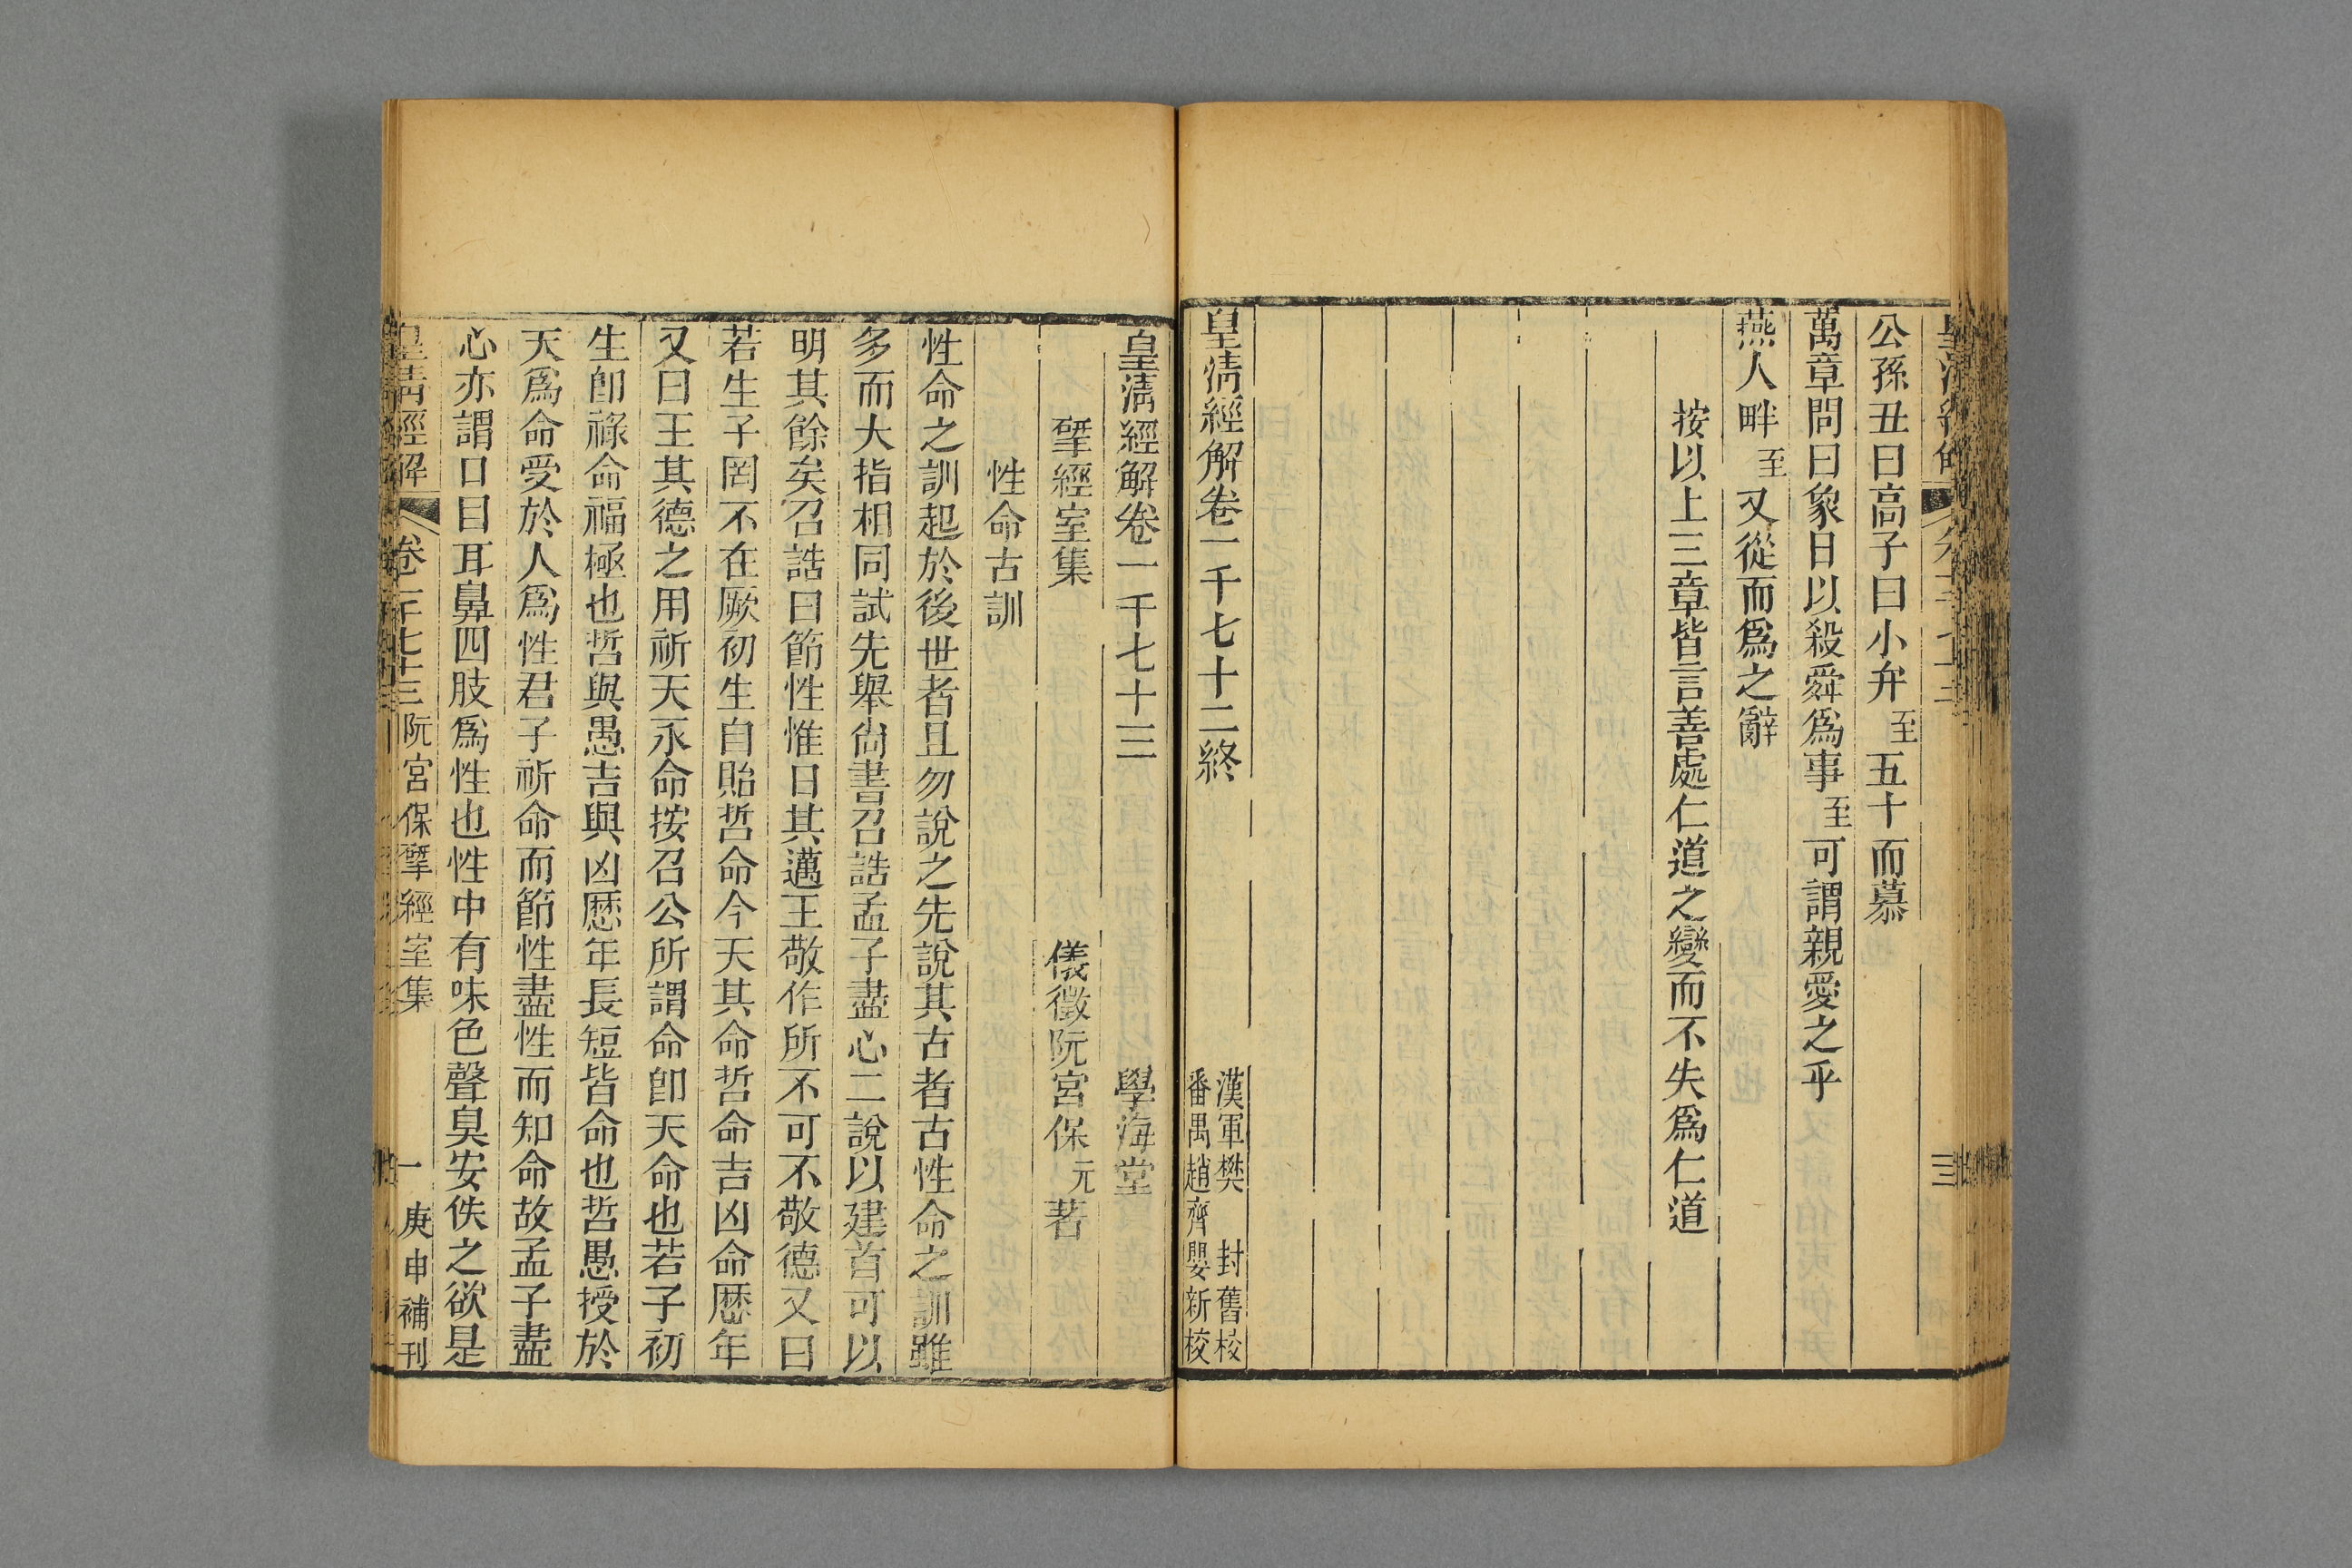 公孫丑曰高子曰小弁至五十而慕
萬章問曰象日以殺舜爲事至可謂親愛之乎
燕人畔至又從而爲之辭
按以上三章皆言善處仁道之變而不失爲仁道
皇淸經解卷一千七十二終
漢軍樊 封舊校
番禺趙齊嬰新校
皇淸經解卷一千七十三 學海堂
揅經室集 儀徵阮宮保元著
性命古訓
性命之訓起於後世者且勿說之先說其古者古性命之訓雖
多而大指相同試先舉尙書召誥孟子盡心二說以建首可以
明其餘矣召誥曰節性惟日其邁王敬作所不可不敬德又曰
若生子罔不在厥初生自貽哲命今天其命哲命吉凶命歷年
又曰王其德之用祈天永命按召公所謂命卽天命也若子初
生卽祿命福極也哲與愚吉與凶歷年長短皆命也哲愚授於
天爲命受於人爲性君子祈命而節性盡性而知命故孟子盡
心亦謂口目耳鼻四肢爲性也性中有味色聲臭安佚之欲是
皇淸經解 卷一千七十三阮宮保揅經室集 一 庚申補刊